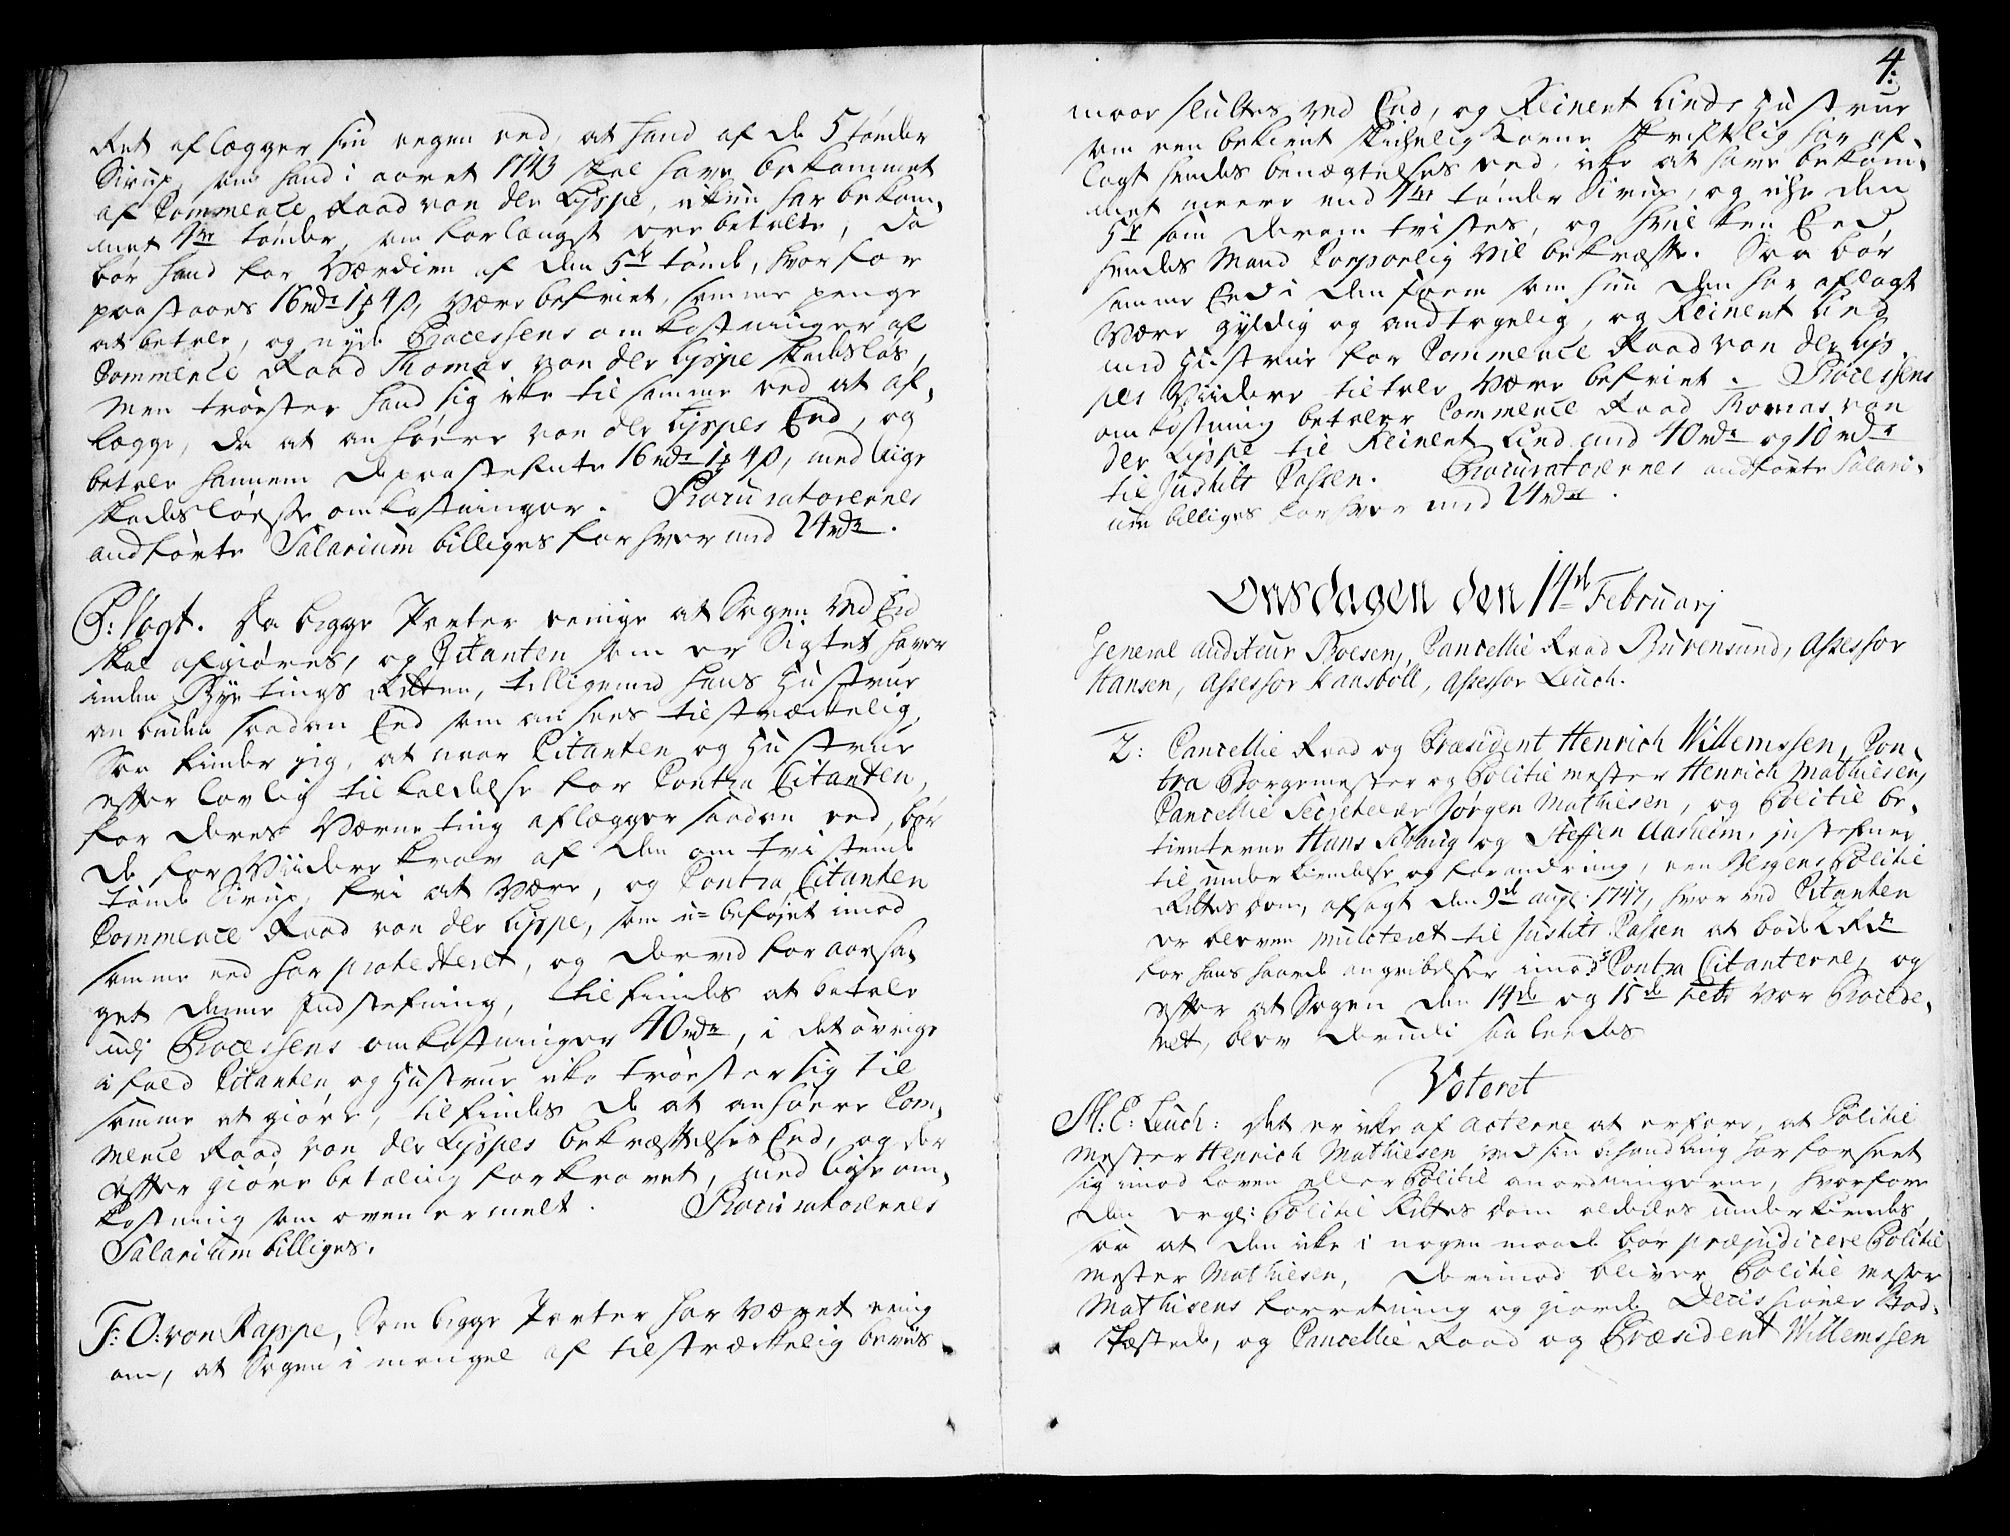 Ret aflægger sin eegen eed, at hand af de 5 tønder
Sirup, som hand i aaret 1743 skal have bekommet
af Commerce Raad von der Lippe, ikun har bekom-
met 4re tønder, som forlængst ere betalte, da
bør hand for Værdien af den 5te tønde, hvorfor
paastaaes 16 rdr 1 ℔ 4 ß, være befriet, samme penge
at betale, og nyde Processens omkostninger af
Commerce Raad Thomas von der Lippe skadesløs,
Men trøster hand sig ikke til samme eed at af-
lægge, da at anhøre von der Lippes Eed, og
betale hannem de paastefnte 16 rdr 1 ℔ 4 ß, med lige
skadesløse omkostninger. Procuratorernes
andførte Salarium billiges for hver med 24 rdr.
P: Vogt. Da begge Parter eenige at Sagen ved Eed
skal afgiøres, og Citanten som er Sigtet haver
inden Bye tings Retten, tilligemed hans Hustrue
anbuden saadan Eed som ansees tilstrækkelig,
Saa finder jeg, at naar Citanten og Hustrue
efter lovlig tilkaldelse for Contra Citanten,
for deres Værneting aflægger saadan eed, bør
de for Viidere krav af den omtvistende
tønde Sirup, fri at være, og Contra Citanten
Commerce Raad von der Lippe, som u-beføjet imod
samme eed har protesteret, og derved foraarsa-
get denne Indstefning, tilfindes at betale
udj Processens omkostninger 40 rdr, i det øvrige
i fald Citanten og Hustrue ikke trøster sig til
samme at giøre, tilfindes de at anhøre Com-
merce Raad von der Lippes bekræftelses Eed, og der
efter giøre betaling for kravet, med lige om-
kostning som oven ermelt. Procuratorernes
Salarium billiges.
F: O: von Rappe, Som begge Parter har været eenig
om, at Sagen i mangel af tilstrækkelig beviis
4:
maae sluttes ved Eed, og Reinert Linds Hustrue
som een bekient skichelig Kone skriftlig har af-
lagt hendes benægtelses eed, ikke at have bekom-
met meere end 4re tønder Sirup, og ikke den
5te som derom tvistes, og hvilken Eed
hendes Mand Corporlig vil bekræfte. Saa bør
samme Eed i den form som hun den har aflagt
være gyldig og andtagelig, og Reinert Lind
med Hustrue for Commerce Raad von der Lip-
pes Viidere tiltale være befriet. Processens
omkostning betaler Commerce Raad Thomas von
der Lippe til Reinert Lind med 40 rdr og 10 rdr
til Justits Cassen. Procuratorernes andførte Salari-
um billiges for hver med 24 rdr.
Onsdagen den 14de Februarj
General Auditeur Boesen, Cancellie Raad Burensund, Assessor
Hansen, Assessor Ransböll, Assessor Leuch.
2: Cancellie Raad og Præsident Henrich Willemssen, Con-
tra Borgemester og Politie mester Henrich Mathiesen,
Cancellie Secreterer Jørgen Mathiesen, og Politie be-
tienterne Hans Schmig og Steffen Aasheim, indstefnet
til underkiendelse og forandring, een Bergens Politie
Rettes dom, afsagt den 9de aug: 1747, hvorved Citanten
er bleven mulcteret til Justits Cassen at bøde 2 Rdr
for hans haarde angribelser imod Contra Citanterne, og
efter at Sagen den 14de og 15de Febr var Procede-
ret, blev derudi saaledes
Voteret
M: C: Leuch: Det er ikke af acterne at erfare, at Politie
Mester Henrich Mathiesen ved sin behandling har forseet
sig imod loven eller Politie anordningerne, hvorfore
den ergl: Politie Rettes dom aldeles underkiendes,
saa at den ikke i nogen maade bør præjudicere Politie
Mester Mathiesen, derimod bliver Politie Mester
Mathisens forretning og giorde Decisioner Stad-
fæstede, og Cancellie Raad og Præsident Willemssen